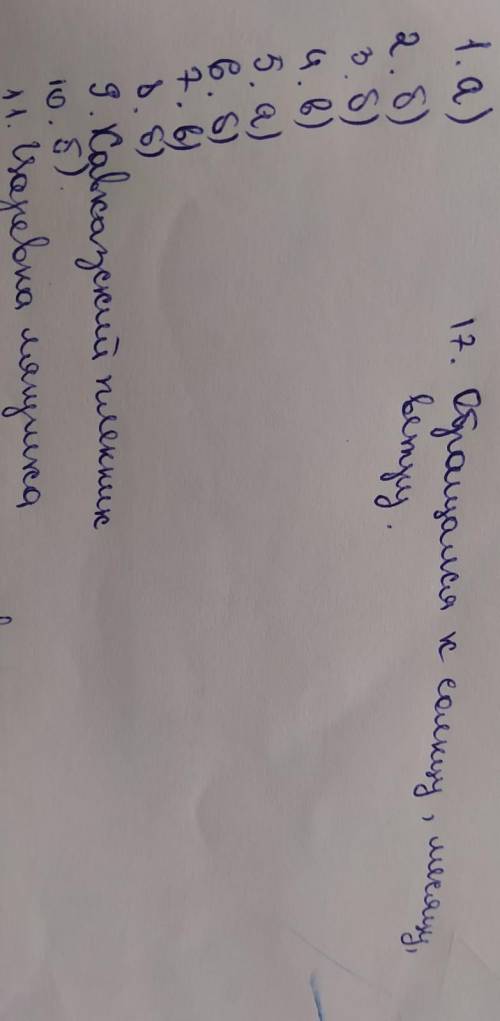 1. а)
2. б)
3. б)
4. в)
5. а)
6. б)
7. в)
8. б)
9. Кавказский пленник
10. б)
11. Царевна лягушка
17. Обращался к солнцу, месяцу,
ветру.